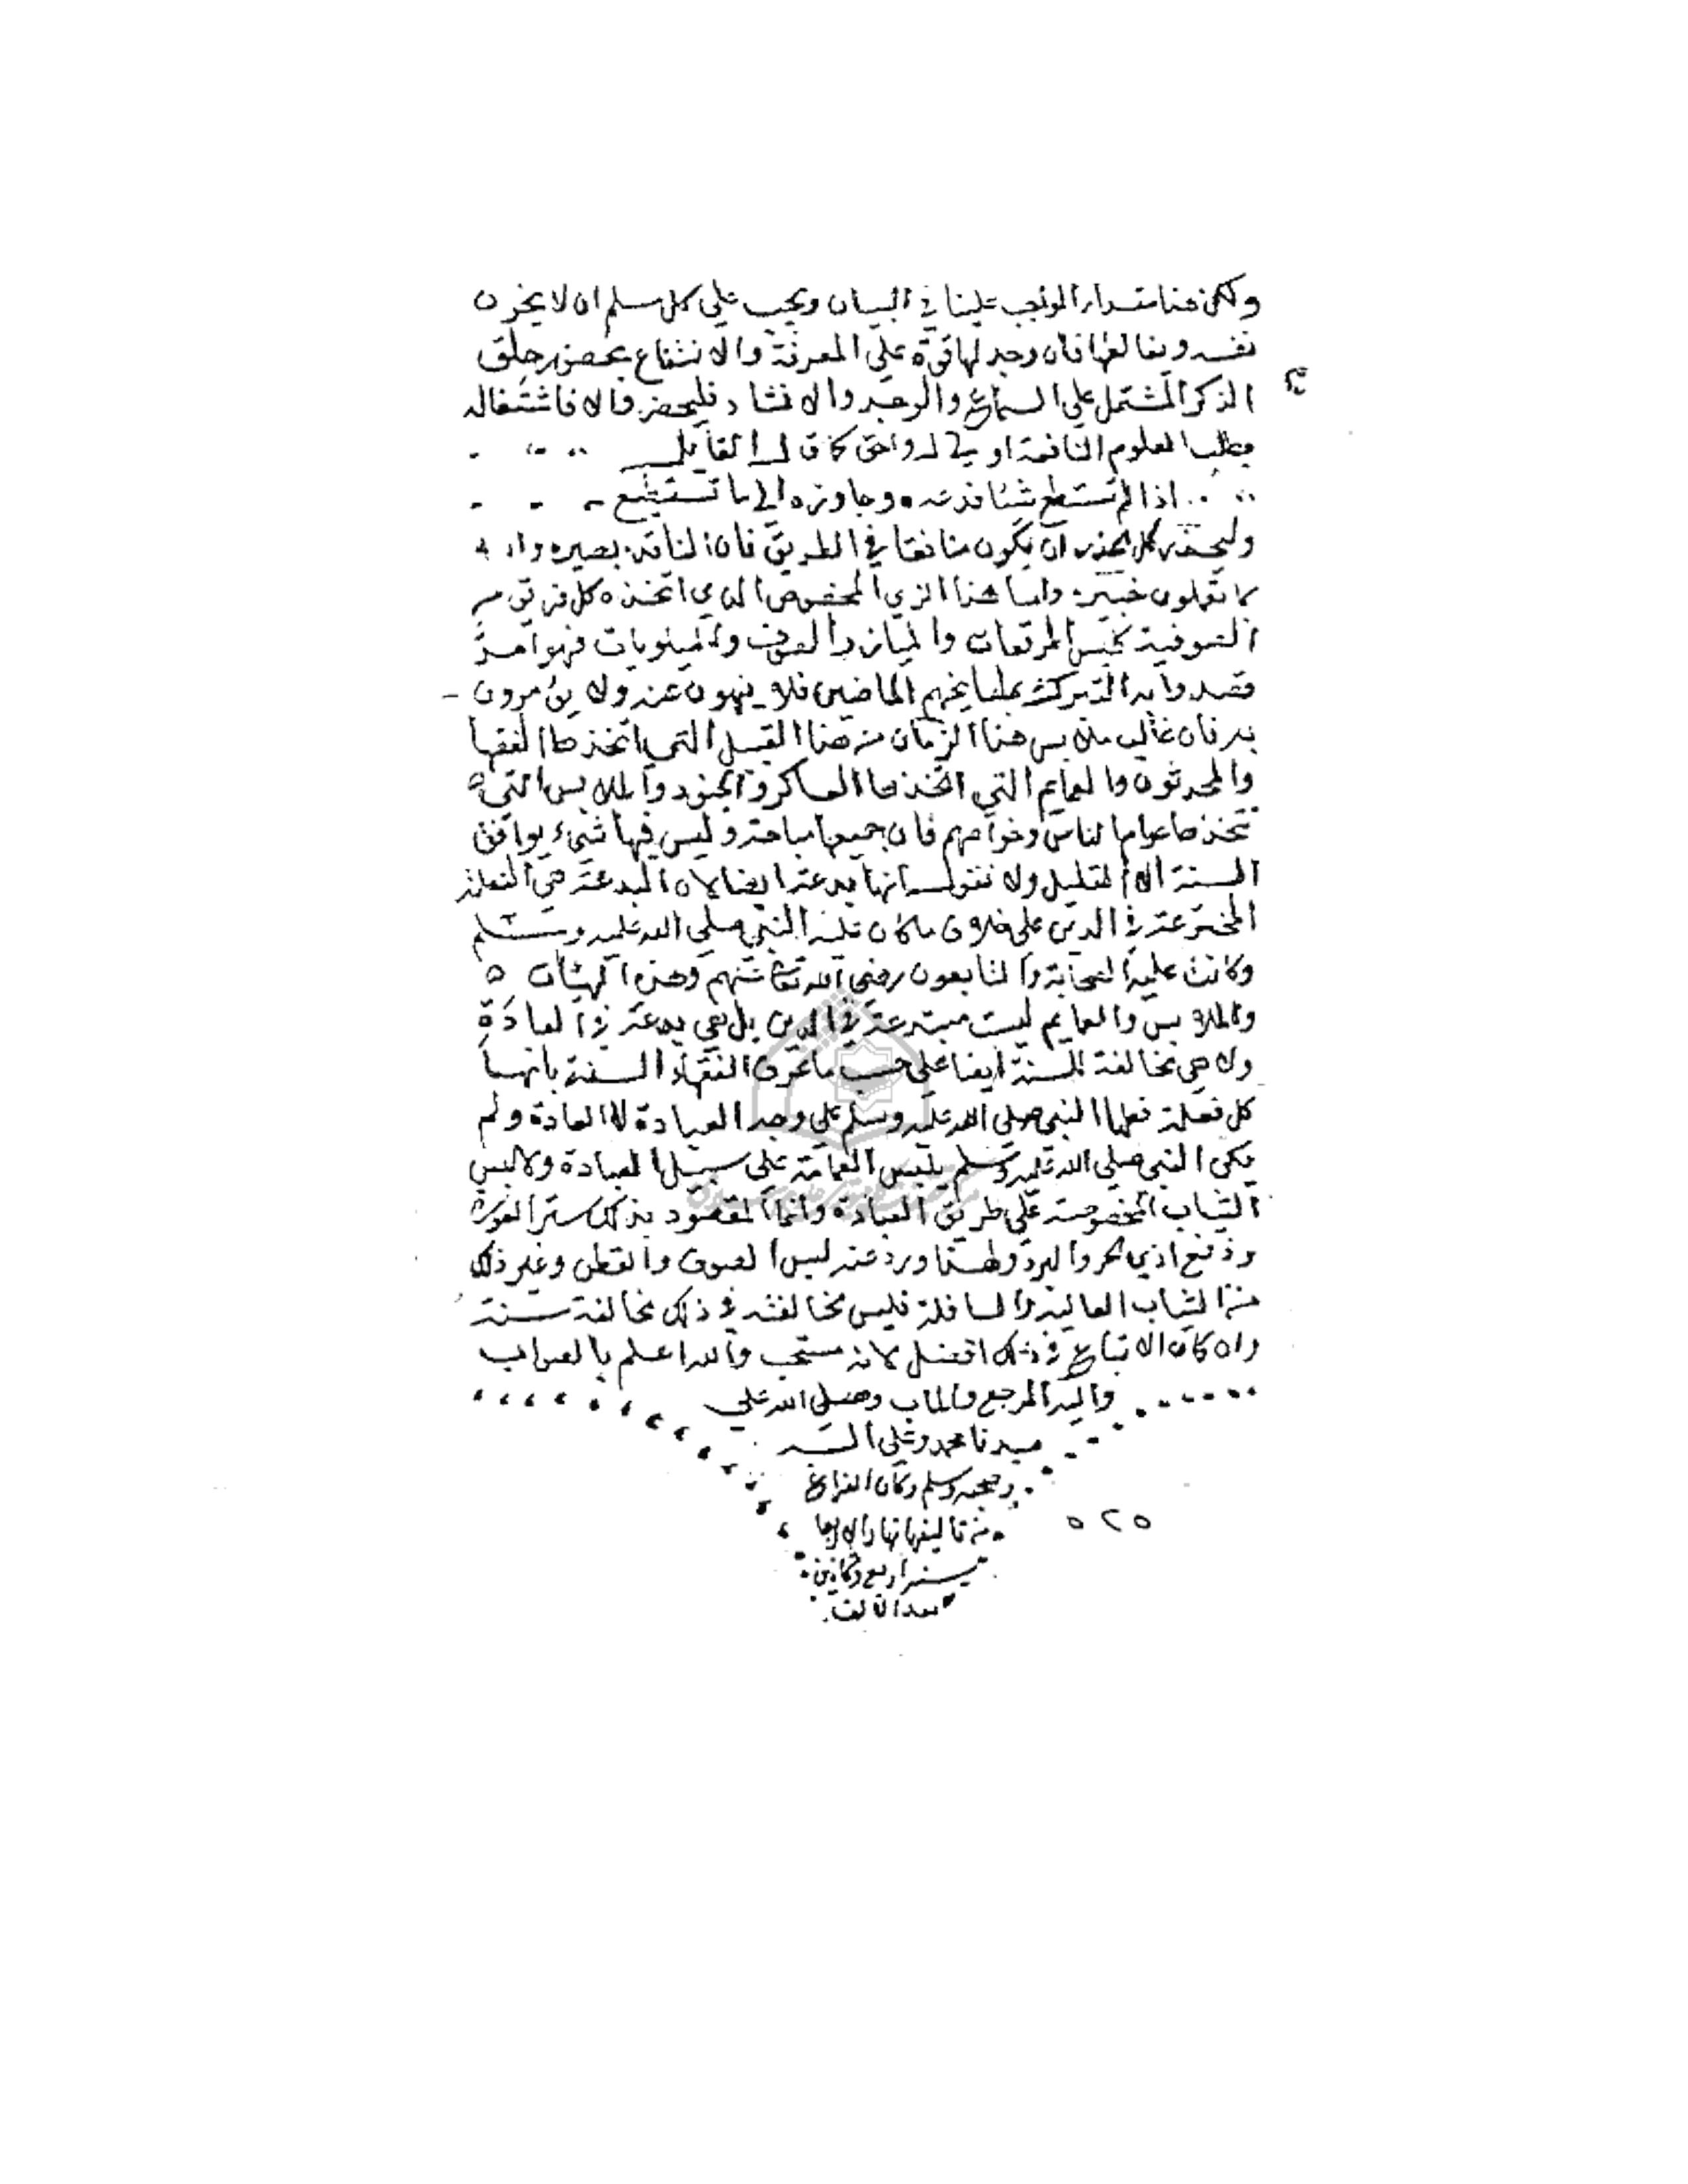 ولكن هنا مقدار الواجب علينا في البيان ويجب على كل مسلم ان لا يخون
نفسه ويغالطها فان وجد لها قوة على المعرفة والانتفاع بحضور حلق
الذكر المشتمل على السماع والوجد والانشاد فليحضر والا فاشتغاله
بطلب العلوم النافعة اولى له واحق كما قال القايل
اذا لم تستطع شيئا فدعه وجاوزه الى ما تستطيع
وليحذر كل الحذر ان يكون منافقا في الطريق فان الناقد بصير والله
بما تعملون خبير واما هذا الزي المخصوص الذي اتخذه كل فريق من
الصوفية كلبس المرقعات والميازر الصوف والميلويات فهو امر
قصدوا به التبرك بمشايخهم الماضين فلا ينهون عنه ولا يؤمرون
به فان غالب ملابس هذا الزمان من هذا القبيل التي اتخذها الفقها
والمحدثون والعمايم التي اتخذها العساكر والجنود والملابس التي
تتخذها عوام الناس وخواصهم فان جميعها مباحة وليس فيها شيء يوافق
السنة الا القليل ولا نقول انها بدعة ايضا لان البدعة هي الفعلة
المخترعة في الدين على خلاف ما كان عليه النبي صلى الله عليه وسلم
وكانت عليه الصحابة والتابعون رضي الله تعالى عنهم وهذه الهيئات
والملابس والعمايم ليست مبتدعة في الدين بل هي بدعة في العادة
ولا هي مخالفة للسنة ايضا على حسب ما عرف الفقهاء السنة بانها
كل فعلة فعلها النبي صلى الله عليه وسلم على وجه العبادة لا العادة ولم
يكن النبي صلى الله عليه وسلم يلبس العمامة على سبيل العبادة ولا لبس
الثياب المخصوصة على طريق العبادة وانما المقصود بذلك ستر العورة
ودفع اذى الحر والبرد ولهذا ورد عنه لبس الصوف والقطن وغير ذلك
من الثياب العالية والسافلة فليس مخالفته في ذلك مخالفة سنة
وان كان الاتباع في ذلك افضل لانه مستحب والله اعلم بالصواب
واليه المرجع والماب وصلى الله على
سيدنا محمد وعلى اله
وصحبه وسلم وكان الفراغ
من تاليفها نهار الاربعا
سنة اربع وثمانين
بعد الالف
٥٢٥